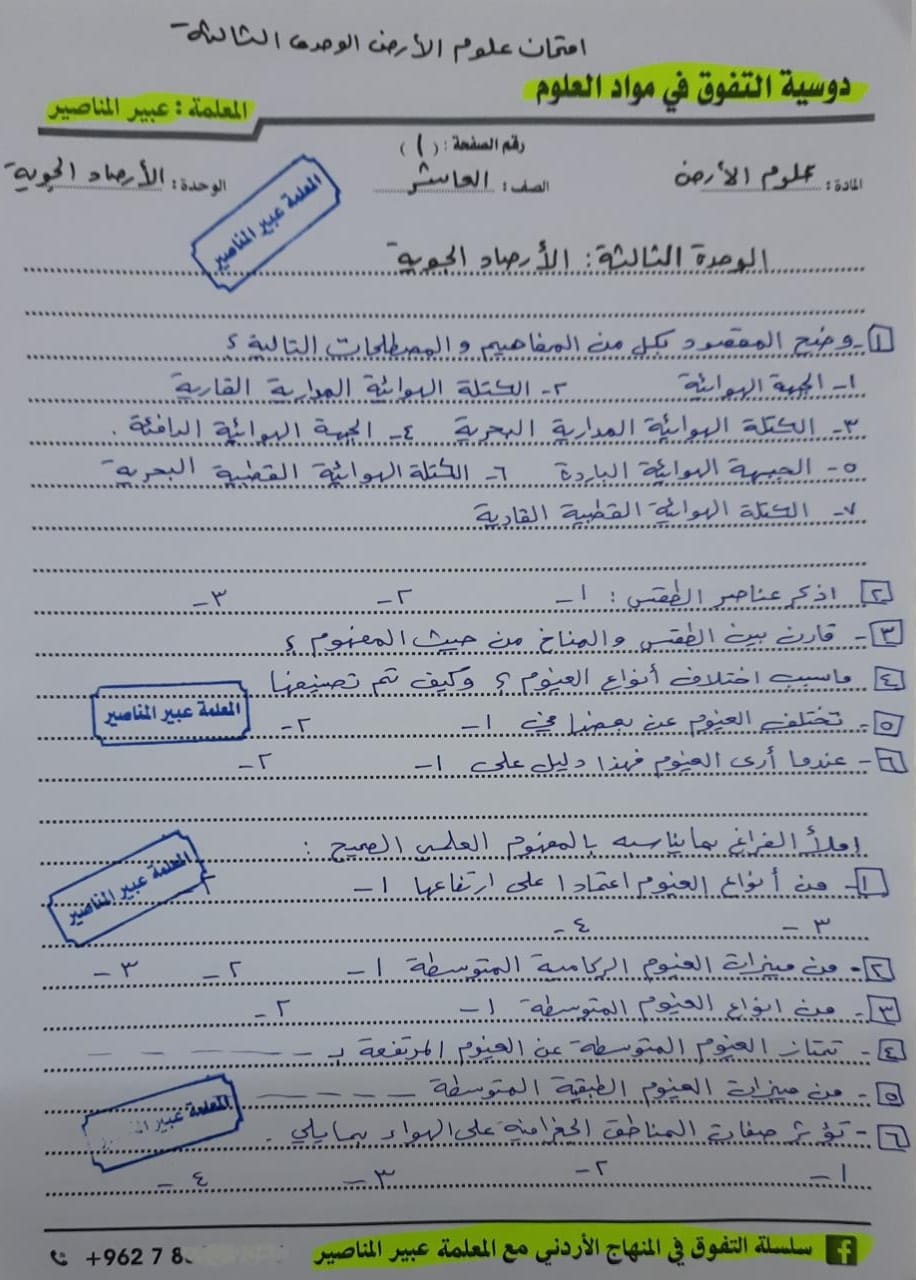 امتحان علوم الأرض الوحدة الثالثة
دوسية التفوق في مواد العلوم
المعلمة : عبير المناصير
رقم الصفحة : (١)
المادة : علوم الأرض الصف : العاشر الوحدة : الأرصاد الجوية
المعلمة عبير المناصير
الوحدة الثالثة : الأرصاد الجوية
١- وضح المقصود بكل من المفاهيم والمصطلحات التالية ؟
١- الجبهة الهوائية ٢- الكتلة الهوائية المدارية القارية
٣- الكتلة الهوائية المدارية البحرية ٤- الجبهة الهوائية الدافئة .
٥- الجبهة الهوائية الباردة ٦- الكتلة الهوائية القطبية البحرية
٧- الكتلة الهوائية القطبية القارية
٢ اذكر عناصر الطقس : ١- ٢- ٣-
٣- قارن بين الطقس والمناخ من حيث المفهوم ؟
٤- ماسبب اختلاف أنواع الغيوم ؟ وكيف تم تصنيفها
المعلمة عبير المناصير
٥- تختلف الغيوم عن بعضها في ١- ٢-
٦- عندما أرى الغيوم فهذا دليل على ١- ٢-
املأ الفراغ بمايناسبه بالمفهوم العلمي الصحيح :
المعلمة عبير المناصير
١- من أنواع الغيوم اعتمادا على ارتفاعها ١- ٢
٣- ٤-
٢- من ميزات الغيوم الركامية المتوسطة ١- ٢- ٣-
٣- من انواع الغيوم المتوسطة ١- ٢-
٤- تمتاز الغيوم المتوسطة عن الغيوم المرتفعة بـ - - - -
٥- من ميزات الغيوم الطبقية المتوسطة - - - -
المعلمة عبير
٦- تؤثر صفات المناطق الجغرافية على الهواء بمايلي .
١- ٢- ٣- ٤-
سلسلة التفوق في المنهاج الأردني مع المعلمة عبير المناصير
+962 7 8